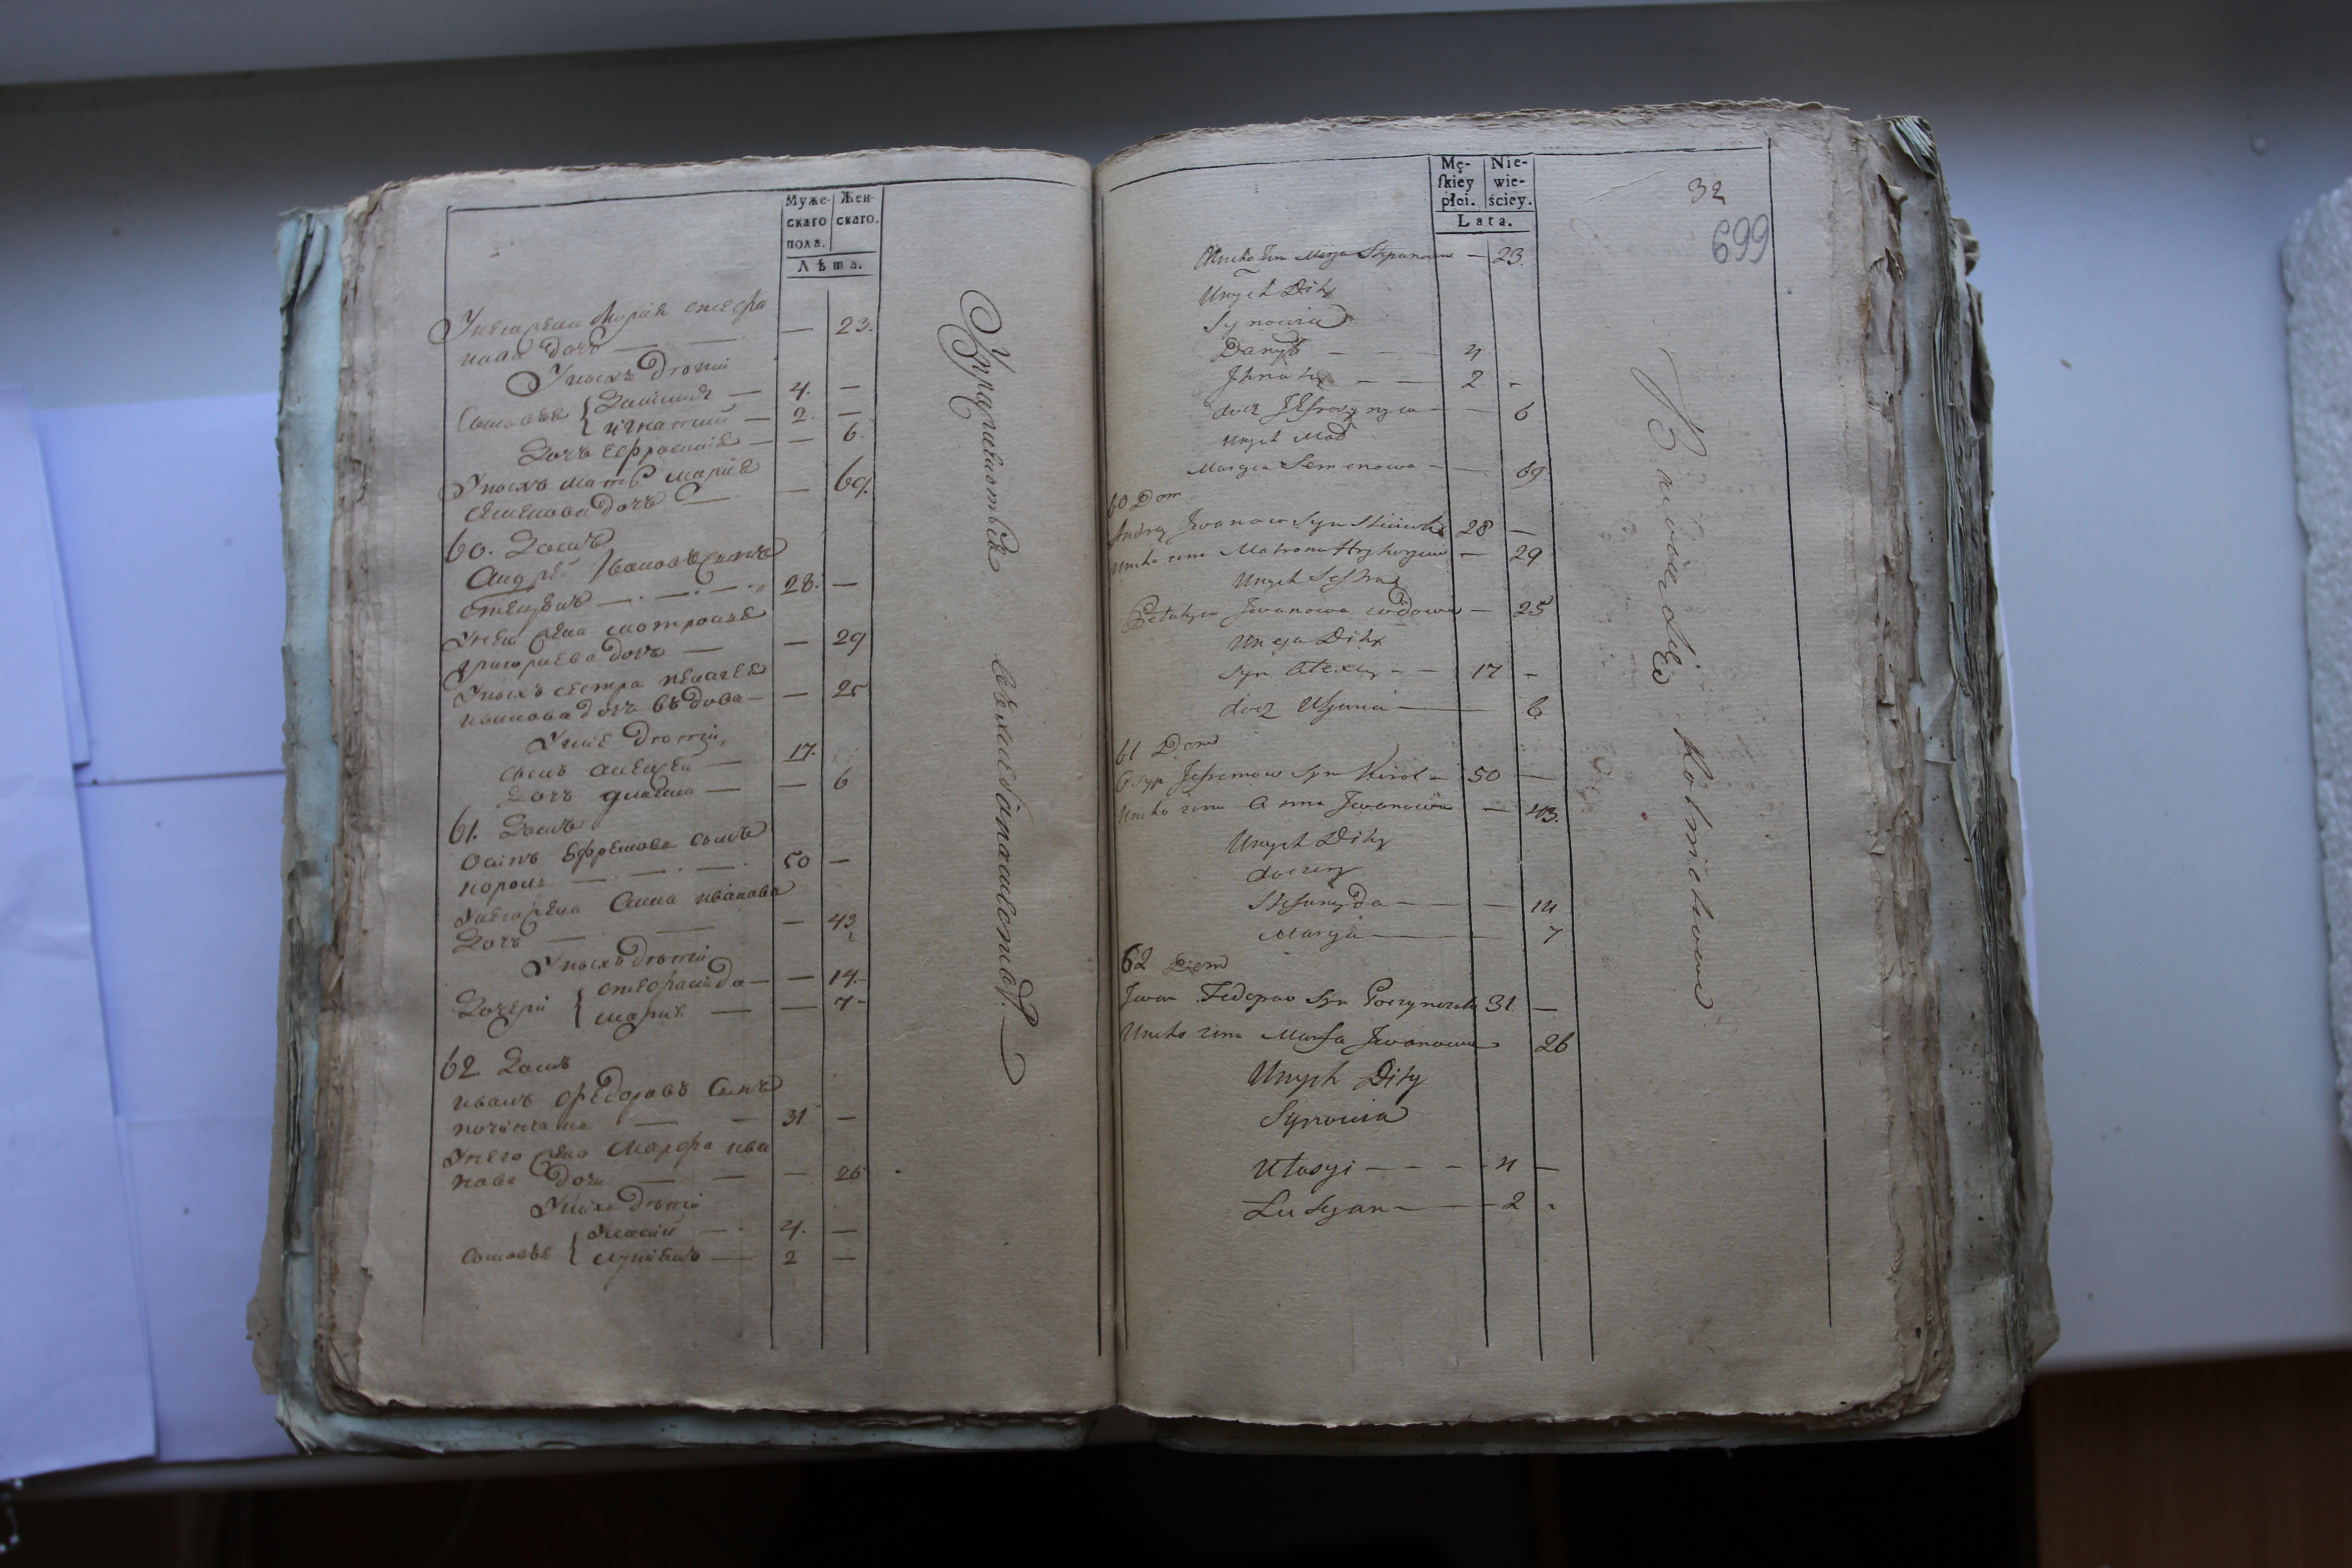 Муже-
скаго
пола.
Жен-
скаго.
Лѣта.
Унего жена Марія Стефа
нова дочь — — — 23.
Унихъ дѣти
Сыновья { Даніилъ — 4. —
игнатий — 2. —
Дочь Ефросинія — — 6.
Унихъ мать Марія
Семенова дочь — — 69.
60. Домъ
Андрей Ивановъ сынъ
— 28. —
Унего жена Мотрона
григориева дочь — — 29
Унихъ сестра пелагея
иванова дочь вдова — — 25
Уние дѣти,
сынъ алексей — 17.
Дочь — — 6
61. Домъ
Осипъ Ефремовъ сынъ
король — 50 —
Унего жена Анна иванова
Дочь — — 43
Унихъ дѣти
Дочери { стефанида — — 14.
мария — — 7
62. Домъ
иванъ федоровъ сынъ
— 31 —
Унего жена Марфа ива
нова дочь — — 26
Унихъ дѣти
Сыновья { Уласий — 4. —
лукианъ — 2 —
Mę-
ſkiey
płci.
Nie-
wie-
ściey.
Lata.
32
699
Uneho żena Marya Stepanowa — 23.
Unych Dity
Synowia
Danyło — — 4
Jhnaty — — 2 -
docz Jefrosynya — — 6
Unych Mać
Marya Semenowa — — 69
60 Dom
Andrey Jwanow Syn 28 —
Uneho zena Matrona Hryhoryewa — 29
Unych Sestra
Pelahya Jwanowa wdowa — 25
Uneja Dity
Syn Alexey — — 17 -
docz Ulijana — 6
61 Dom
Osyp Jefremow Syn Korol — 50 —
Uneho zena Anna Jwanowa — 43.
Unych Dity
doczery
Stefanyda — — 14
Marya — 7
62 Dom
Jwan Fedorow Syn 31 —
Uneho zena Marfa Jwanowa 26
Unych Dity
Synowia
Ułasyi — — — 4 —
Lukyan — 2 -